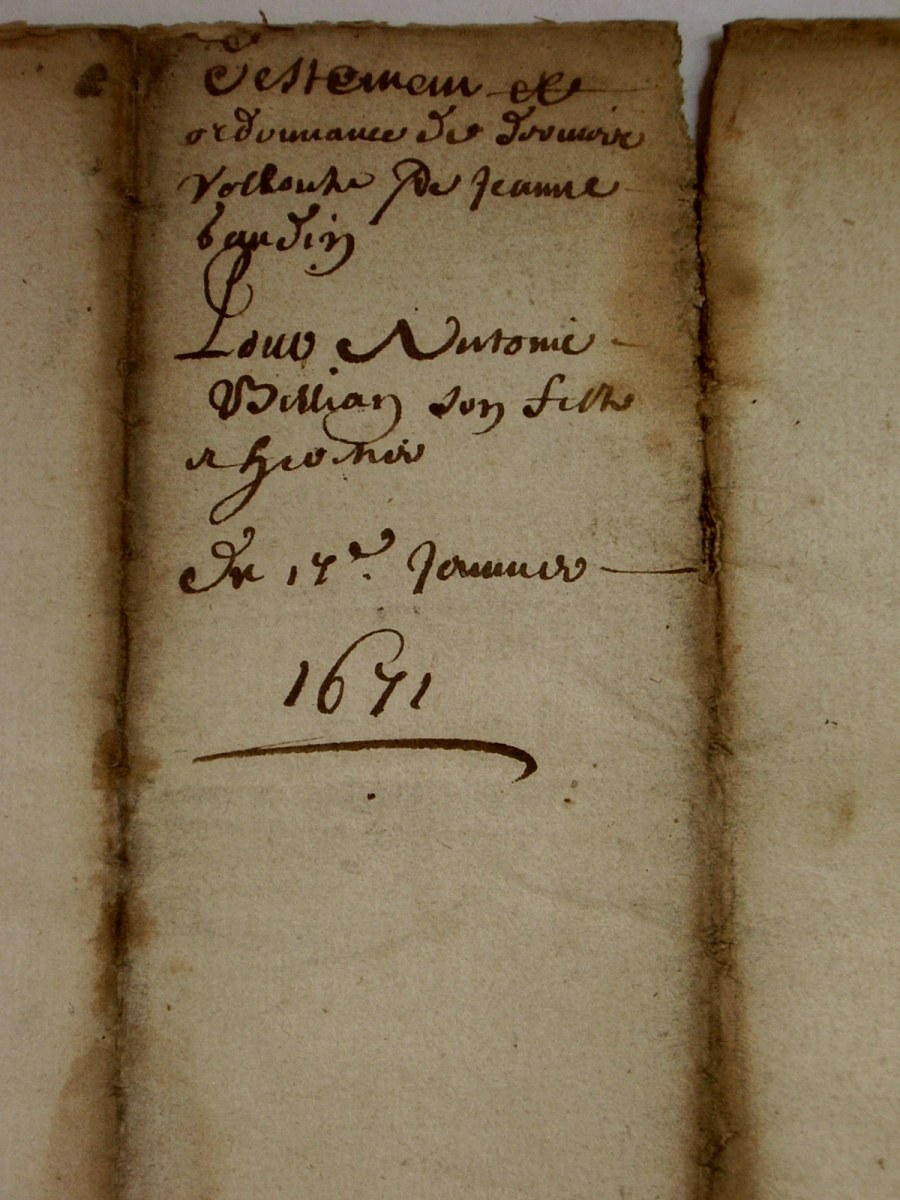 Testement et
ordonnance de derniere
vollonte De Jeanne
baudin
Pour Antonie
Villian son filz
et heritier
Du 17e. Janvier
1671